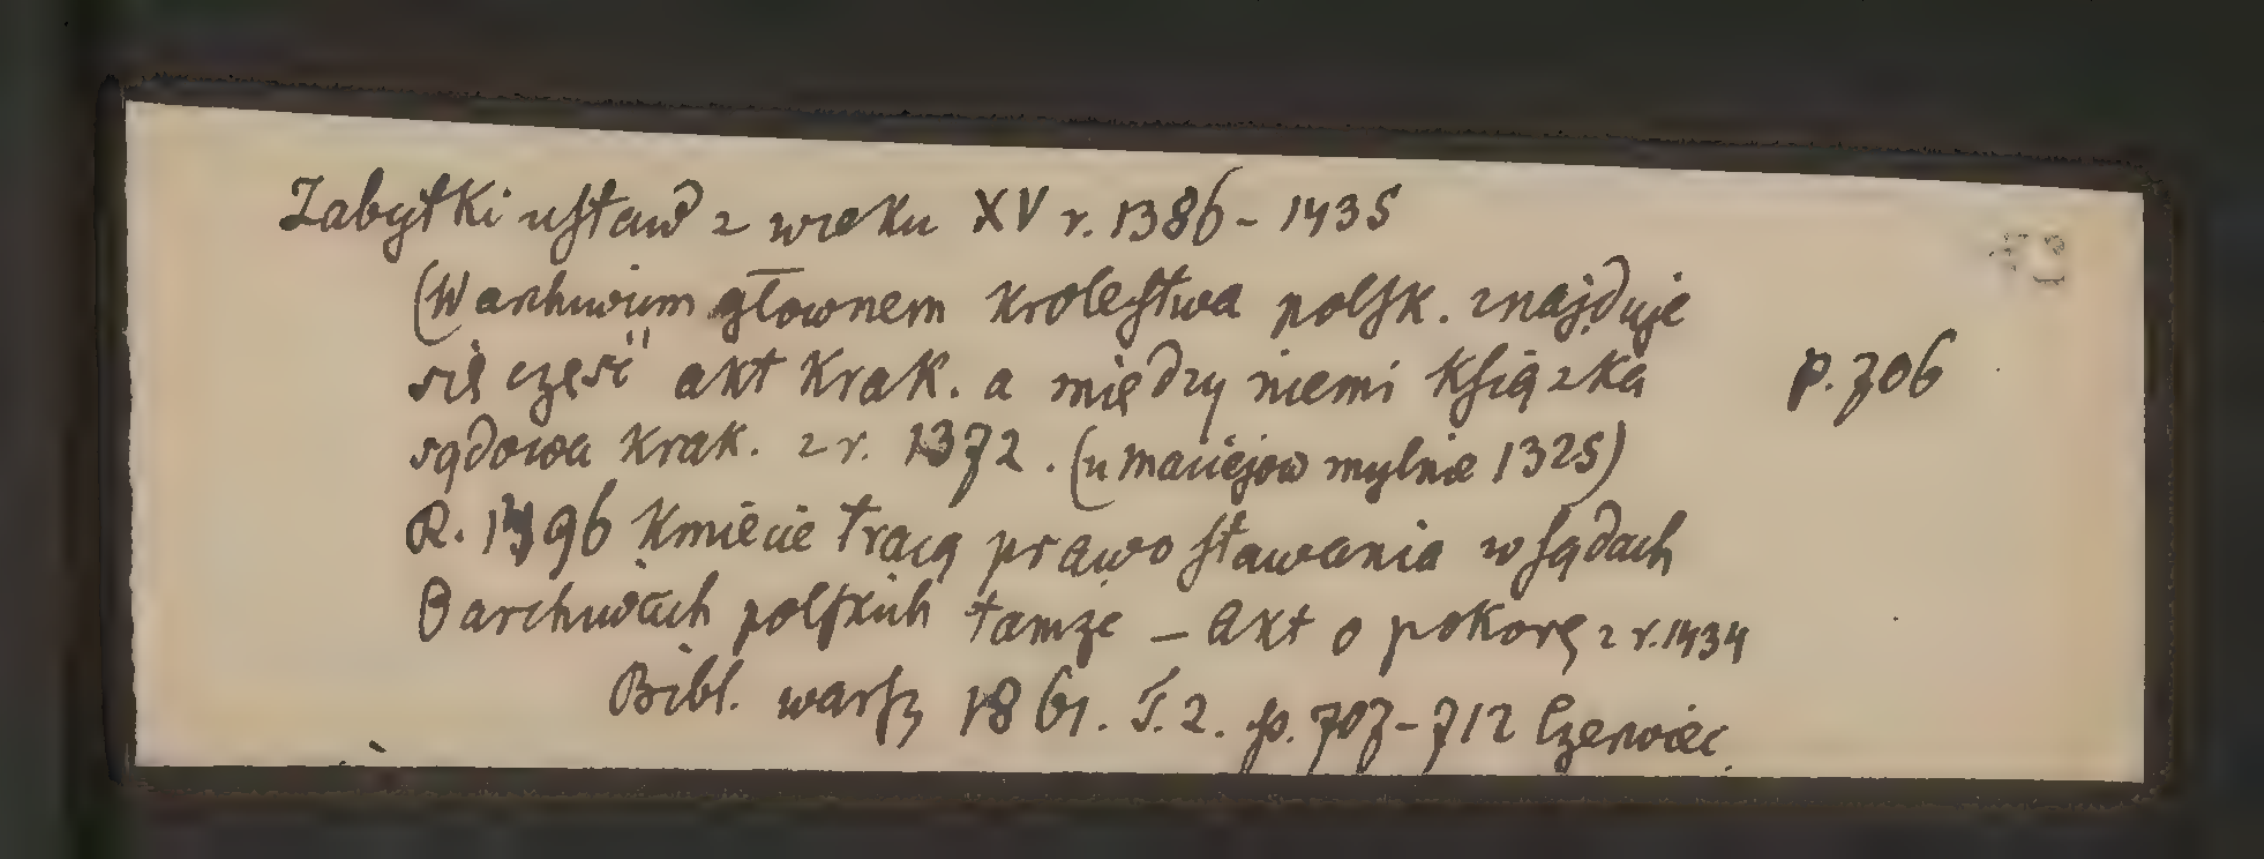 Zabytki ustaw z wieku XV r. 1386 - 1435
(W archiwum głownem krolestwa polsk. znajduje
się część akt krak. a między niemi książka p. 706
sądowa krak. z r. 1372. (u Maciejow mylnie 1325)
R. 1496 Kmiecie tracą prawo stawania w sądach
O archiwach polskich tamże – Akt o pokorę z r. 1434
Bibl. warsz 1861. T. 2. p. 707-712 Czerwiec